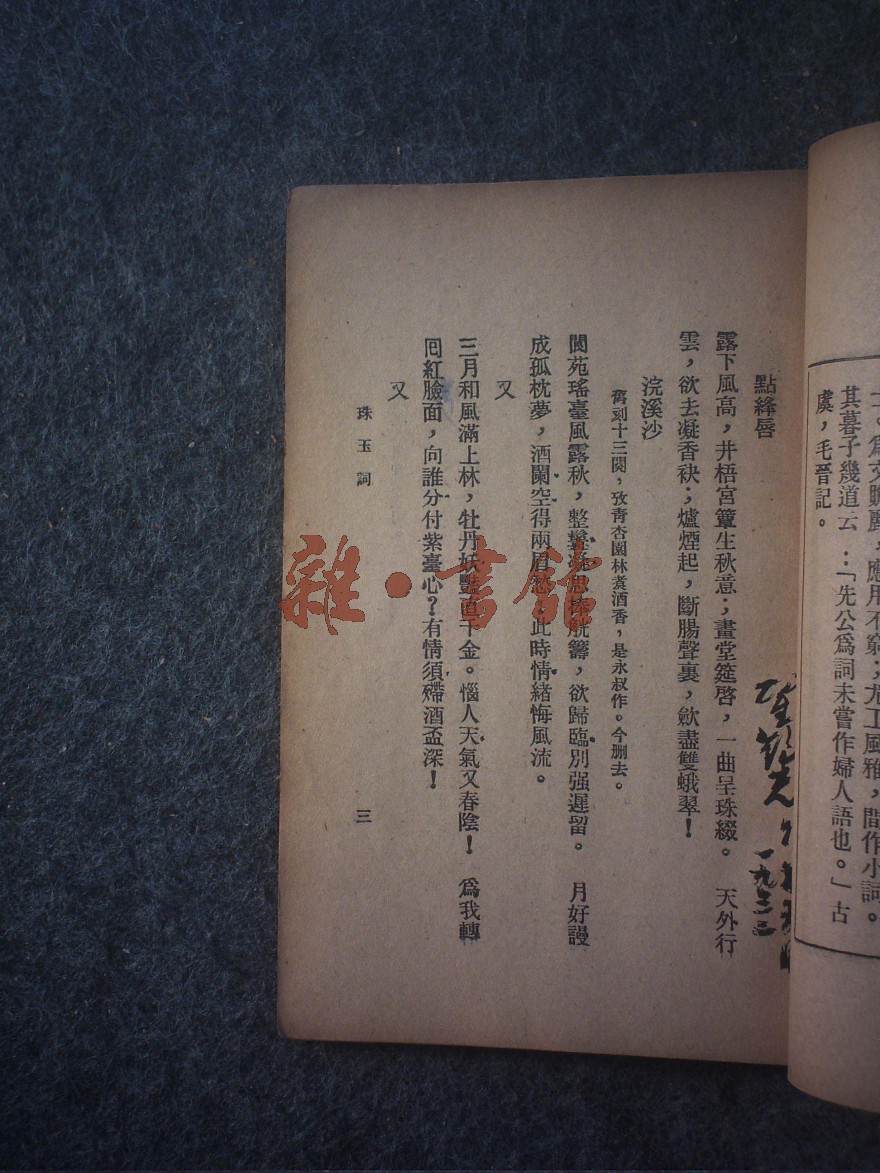 虞，毛晉記。
其暮子幾道云：「先公爲詞未嘗作婦人語也。」古
應用不窮；尤工風雅，間作小詞。
點絳唇
露下風高，井梧宮簟生秋意；畫堂筵啓，一曲呈珠綴。　天外行
雲，欲去凝香袂；爐煙起，斷腸聲裏，歛盡雙蛾翠！
浣溪沙
舊刻十三闋，攷青杏園林煑酒香，是永叔作。今删去。
閬苑瑤臺風露秋，整鬟凝思捧觥籌，欲歸臨別强遲留。　月好謾
成孤枕夢，酒闌空得兩眉愁，此時情緒悔風流。
又
三月和風滿上林，牡丹妖豔直千金。惱人天氣又春陰！　爲我轉
囘紅臉面，向誰分付紫臺心？有情須殢酒盃深！
又
珠玉詞
三
一九三三
雜·書館